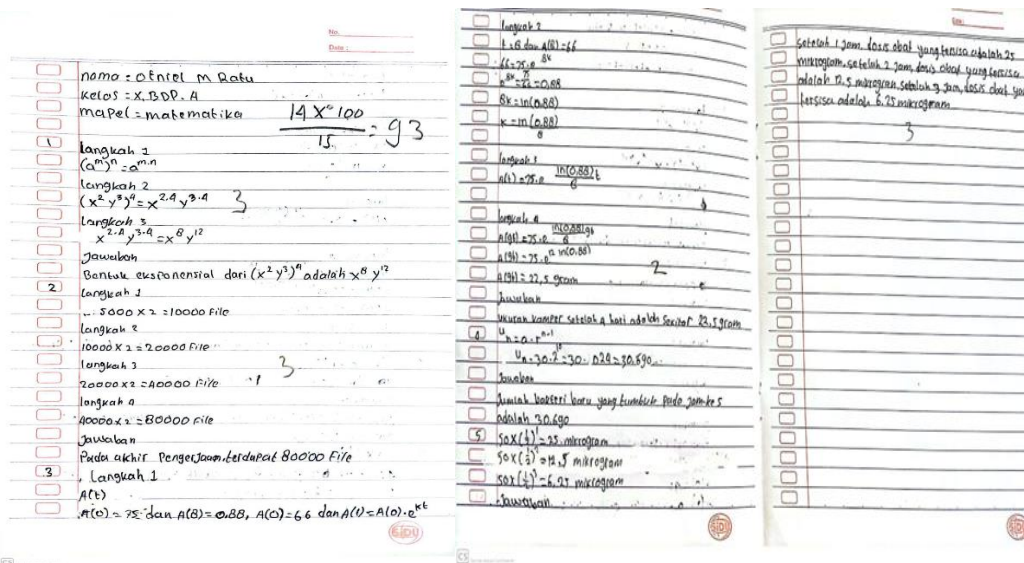 No.
Date :
nama = OENiel M Ratu
Kelas = X.BDP.A
mapel = matematika
14 X 100
15
= 93
1
Langkah 1
(a^m)^n = a^m.n
Langkah 2
(x² y³)⁴ = x^2.4 y^3.4
3
Langkah 3
x^2.4 y^3.4 = x⁸ y¹²
Jawaban
Bentuk eksponensial dari (x² y³)⁴ adalah x⁸ y¹²
2
Langkah 1
5000 X 2 = 10000 File
Langkah 2
10000 X 2 = 20000 File
Langkah 3
3
20000 X 2 = 40000 File
Langkah 4
40000 X 2 = 80000 File
Jawaban
Pada akhir Pengerjaan, terdapat 80000 File
3
Langkah 1
A(t)
A(0) = 75 dan A(8) = 0.88, A(0) = 66 dan A(t) = A(0).e^kt
SIDU
Langkah 2
t = 8 dan A(8) = 66
66 = 75.e^8k
= 0,88
8k = ln(0.88)
k = ln(0.88)
8
Langkah 3
A(t) = 75.e
ln(0.88)t
Langkah 4
ln(0.88)96
A(96) = 75.e
A(96) = 75.e^12 ln(0.88)
2
A(96) = 22,5 gram
Jawaban
Ukuran kamper setelah 4 hari adalah Sekitar 22,5 gram
4
Un = a.r^n-1
Jawaban
Jumlah bakteri baru yang tumbuh pada jam ke 5
adalah 30.690
5
50X(½)¹ = 25 mikrogram
50X(½)² = 12,5 mikrogram
50X(½)³ = 6,25 mikrogram
Jawaban
SIDU
setelah 1 jam, dosis obat yang tersisa adalah 25
mikrogram, setelah 2 jam, dosis obat yang tersisa
adalah 12,5 mikrogram, setelah 3 jam, dosis obat
tersisa adalah 6,25 mikrogram
3